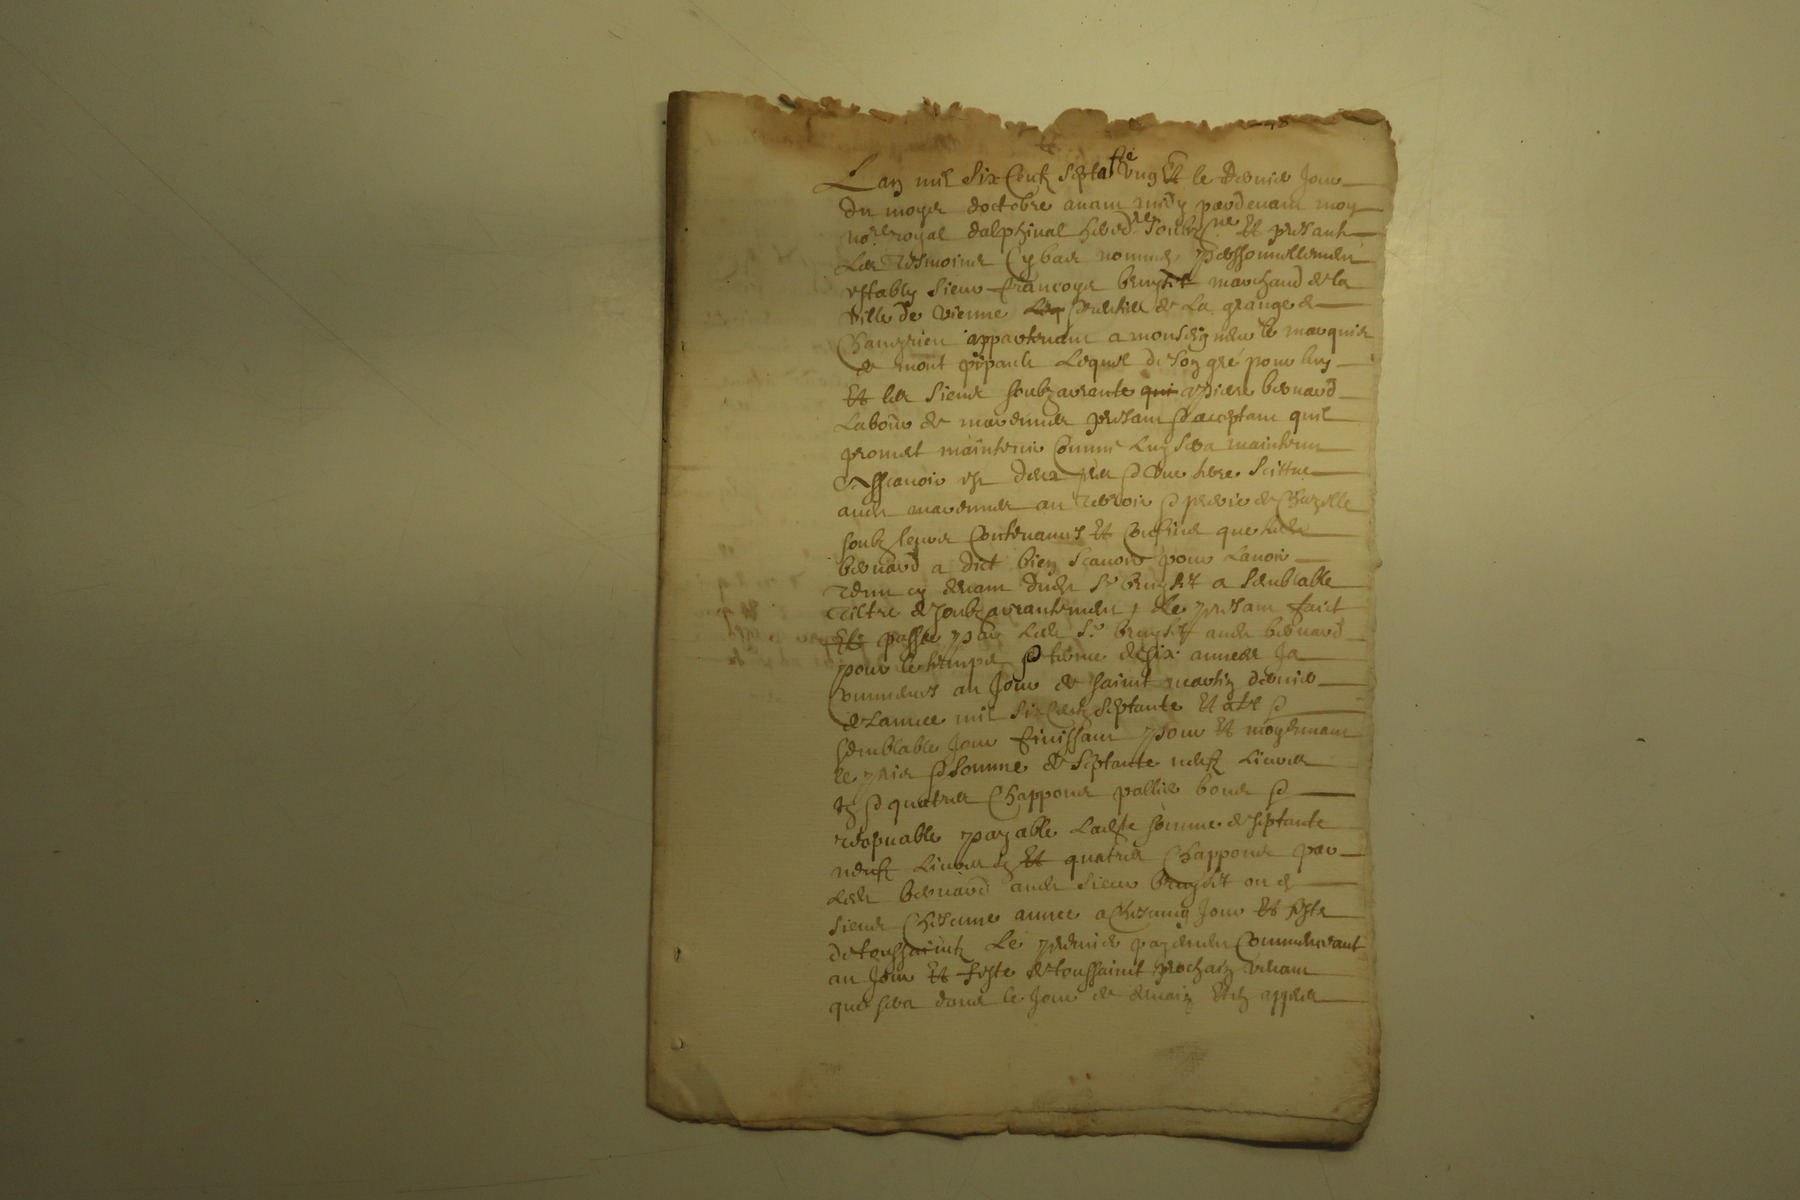 Lan mil six Centz septante ung Et le dernier Jour
du moys doctobre avant midy pardevant moy
no.re royal dalphinal hered.re soubz.ne Et presantz
Les Tesmoins Cy bas nommes personnellement
estably sieur francoys bruyset marchand de la
Ville de Vienne de La grange de
Chameyrieu appartenant a monseigneur le marquis
de mont Lequel de son gré pour luy
Et les siens soubzarrente a piere bernard
Labour de marennes presant & acceptant quil
promet maintenir Comme Luy sera maintenu
Asscavoir & une terre Scittue
audit marennes au Terroir &
soubz leurs Contenances Et Confins que ledit
bernard a dict bien scavoir pour Lavoir
Tenu cy devant dudit Sr bruyset a semblable
Tiltre de soubzarrantement, Le presant faict
Et passé par Ledit Sr bruyset audit bernard
pour le temps & terme de six annees Ja
commences au Jour de saint martin dernier
de Lannee mil six Centz septante Et a tel &
semblable Jour finissant pour Et moyennant
le pris & somme de septante neuf Livres
tz & quatres Chappons pallie bons &
recepvable payable Ladite somme de septante
neufz Livres tz Et quatres Chappons par
Ledit bernard audit sieur bruyset ou es
siens Chescune annee a Chescung Jour Et feste
de toussaintz Le premier payement Commencant
au Jour Et feste de toussaint prochain venant
que sera dans le Jour de demain Et apres